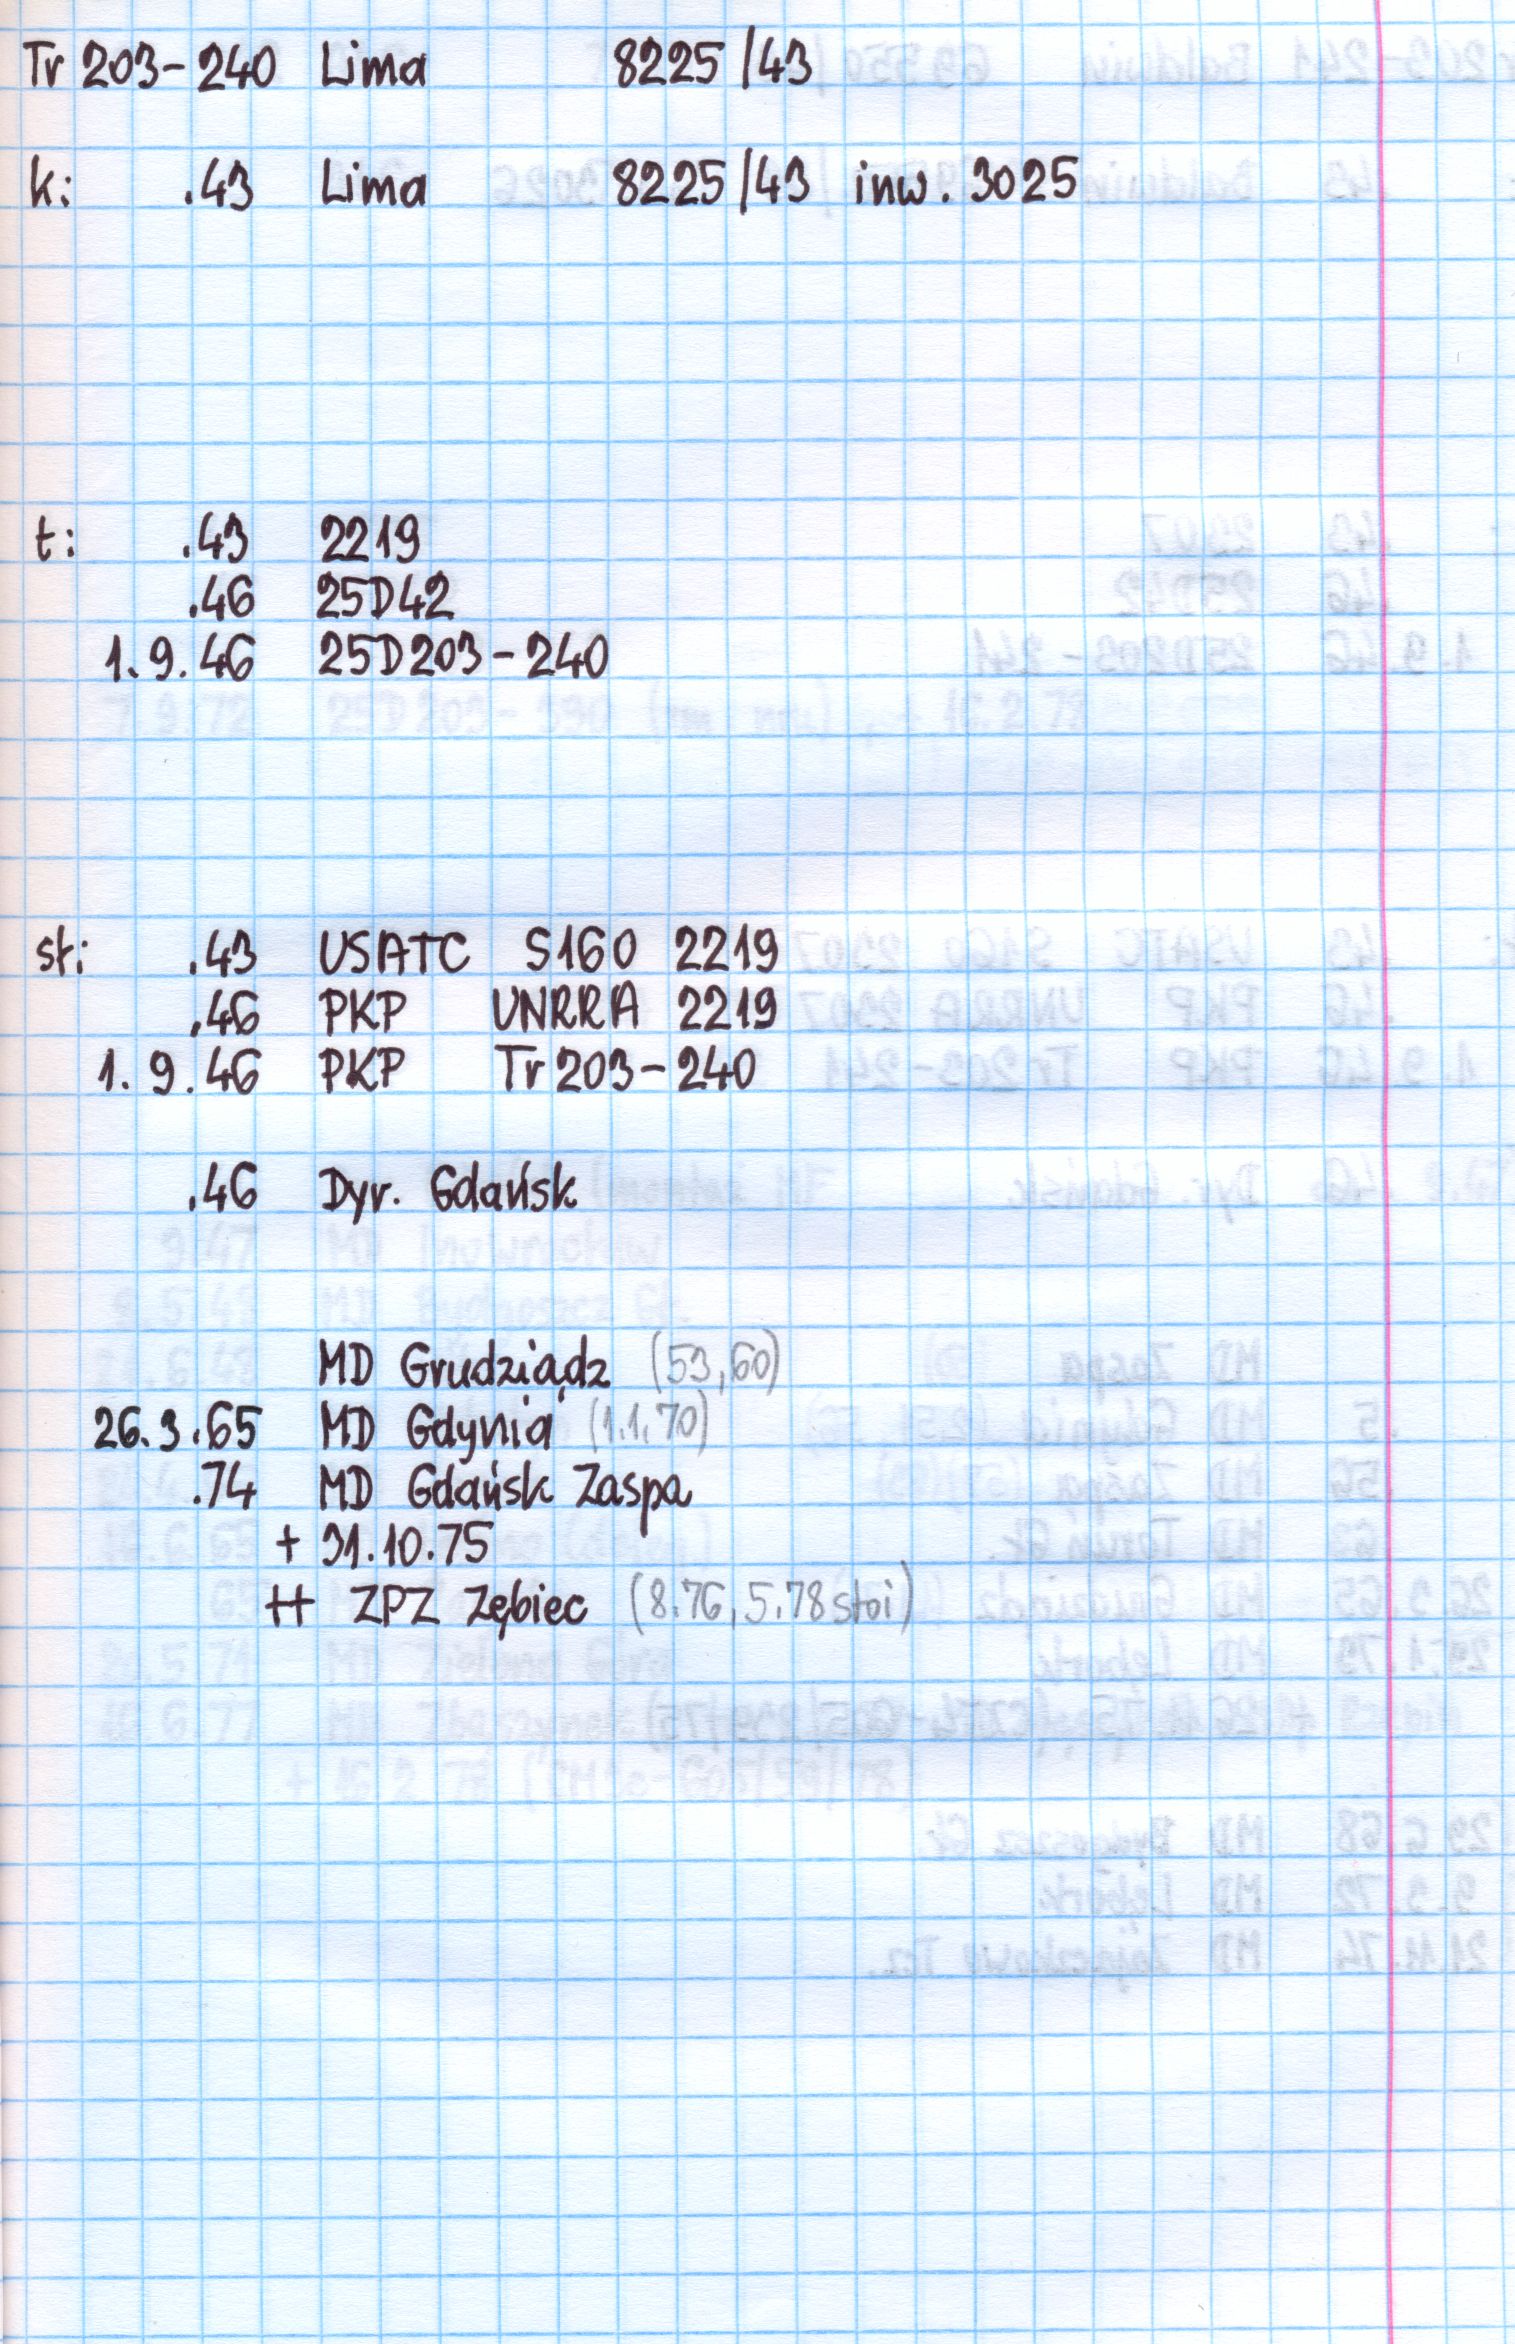 Tr 203-240 Lima 8225/43
k: .43 Lima 8225/43 inw. 3025
t: .43 2219
.46 25D42
1.9.46 25D203-240
st: .43 USATC S160 2219
.46 PKP UNRRA 2219
1.9.46 PKP Tr 203-240
.46 Dyr. Gdańsk
MD Grudziądz (53,60)
26.3.65 MD Gdynia (1.1.70)
.74 MD Gdańsk Zaspa
+ 31.10.75
++ ZPZ Zębiec (8.76, 5.78 stoi)